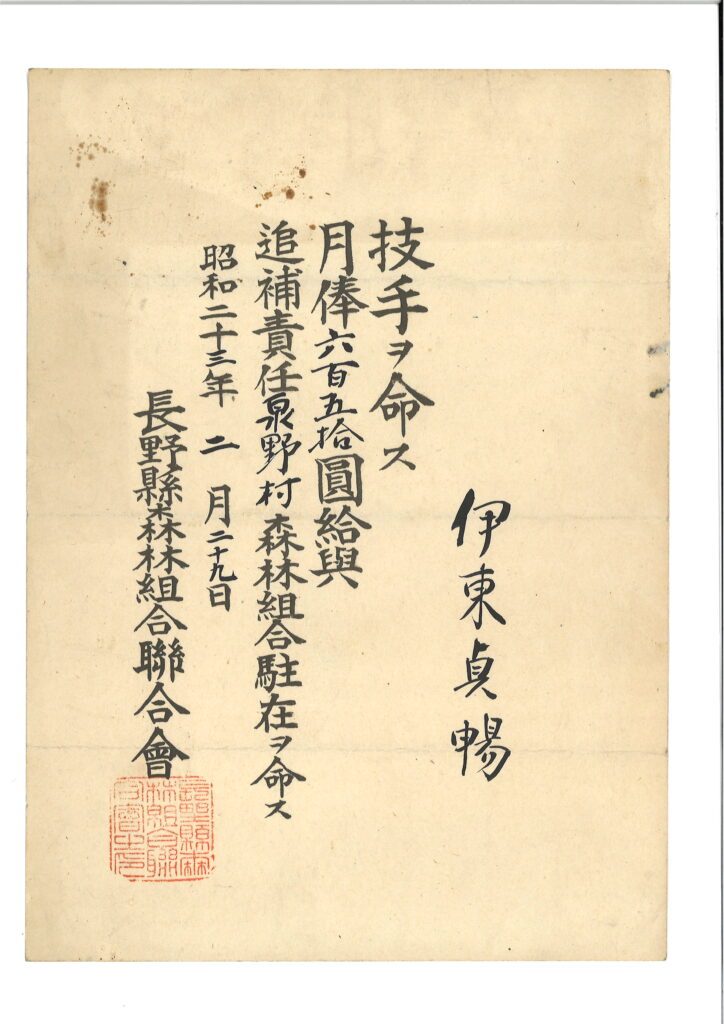 伊東貞暢
技手ヲ命ス
月俸六百五拾圓給與
追補責任泉野村森林組合駐在ヲ命ス
昭和二十三年 二 月二十九日
長野縣森林組合聯合會
長野縣森
林組合聯
合會之印